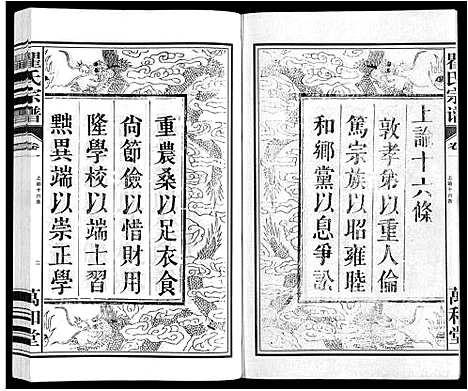 瞿氏宗譜
卷一
上諭十六條
萬和堂
上諭十六條
敦孝弟以重人倫
篤宗族以昭雍睦
和鄉黨以息爭訟
重農桑以足衣食
尚節儉以惜財用
隆學校以端士習
黜異端以崇正學
瞿氏宗譜
卷一
上諭十六條
二
萬和堂